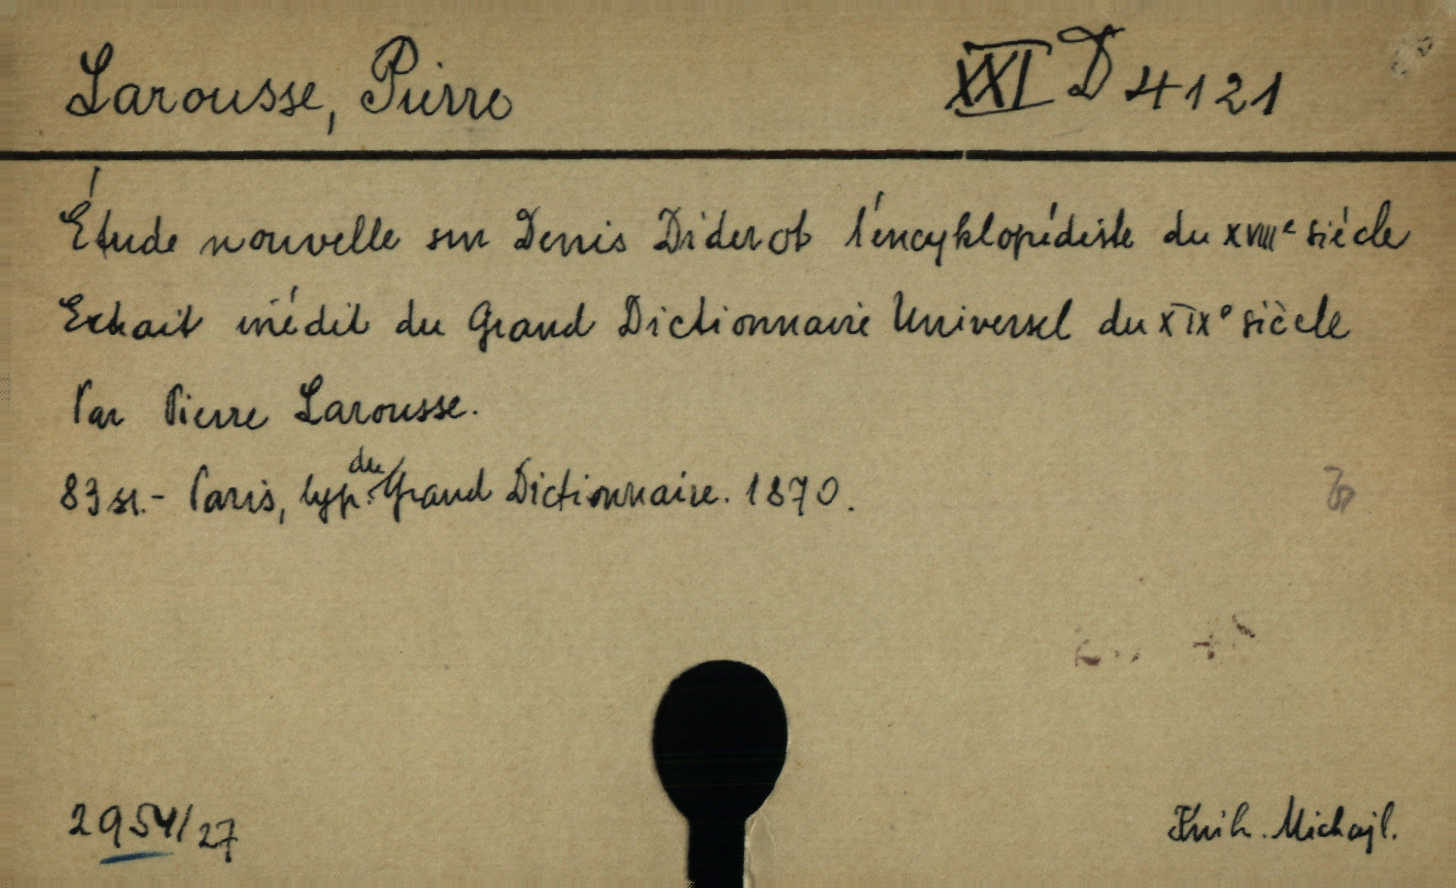 Larousse, Pierre XXI D 4121
Étude nouvelle sur Denis Diderot l'encyklopédiste du XVIIIe siécle
Extrait inédit du Grand Dictionnaire Universel du XIXe siècle
Par Pierre Larousse.
83 st. - Paris, typ. du Grand Dictionnaire. 1870.
2954/27
Knih. Michajl.